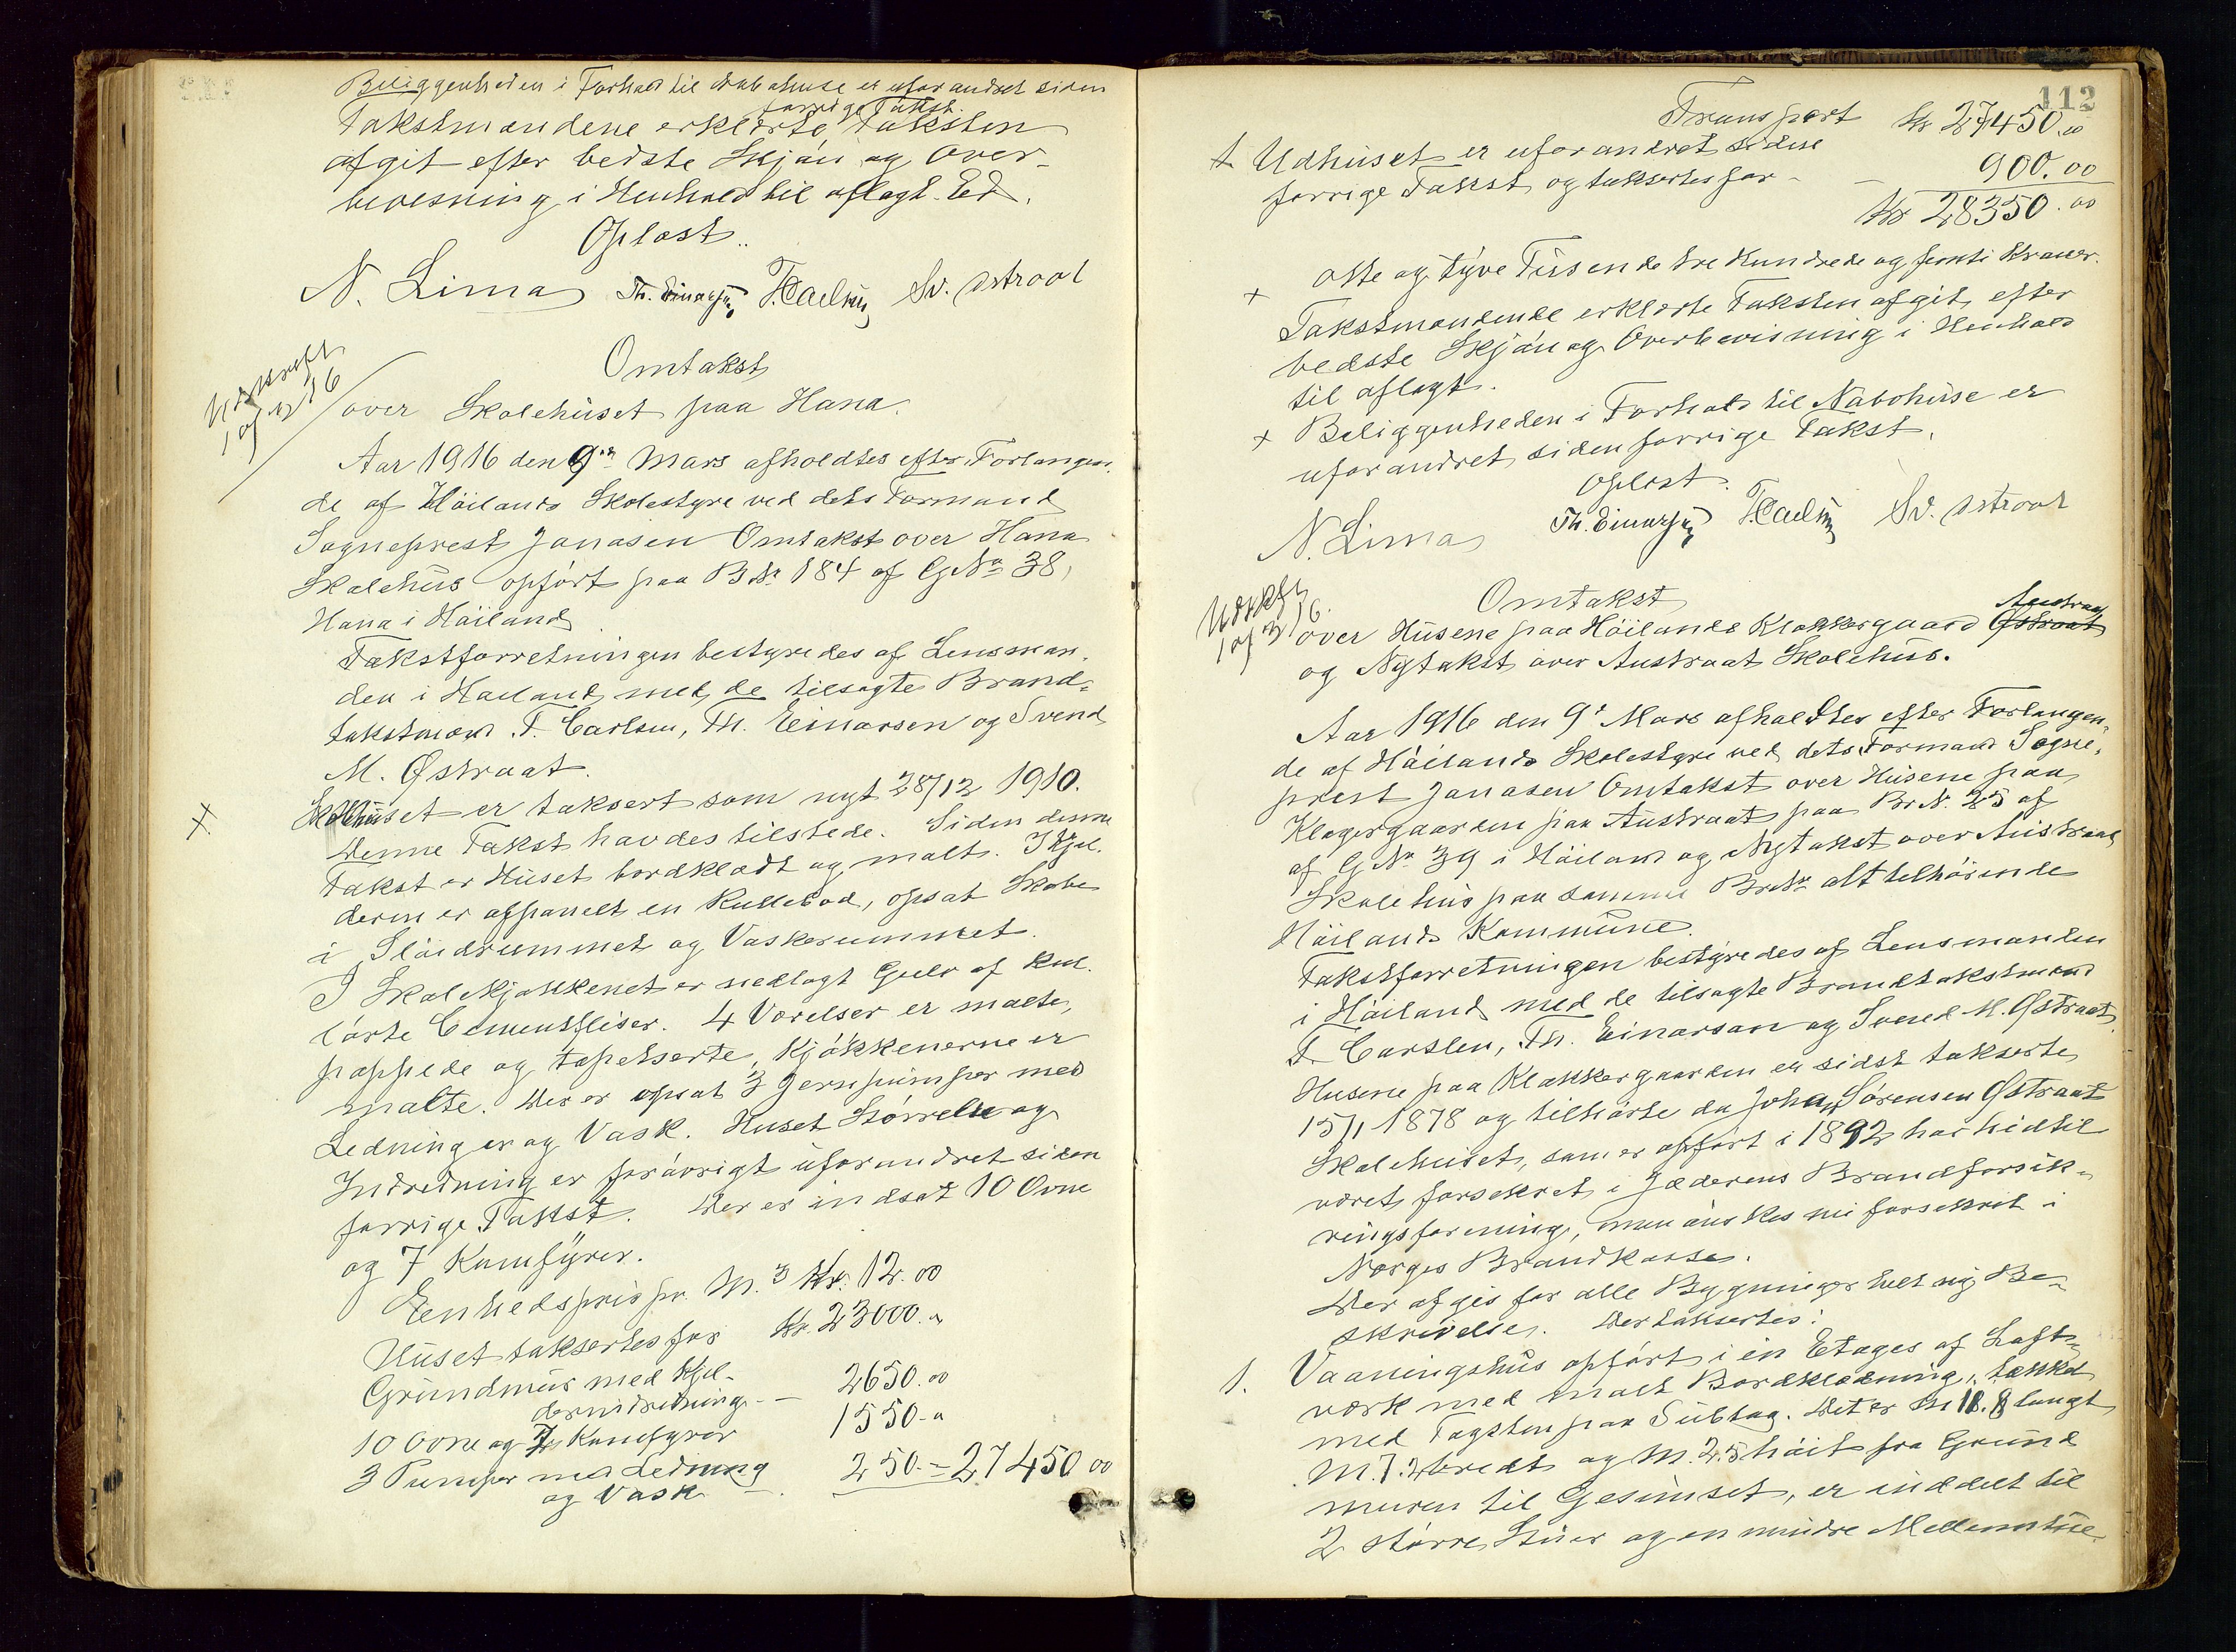 Beliggenheden i Forhold til Nabohuse er uforandret siden
forrige Takst.
Takstmændene erklærte Taksten
afgit efter bedste Skjøn og Over-
bevisning i Henhold til aflagt Ed.
Oplæst.
N. Lima Th. Einarsen T. Carlsen Sv. Østraat
Udskrift
1 og 2 16
Omtakst
over Skolehuset paa Hana.
Aar 1916 den 9de Mars afholdtes efter Forlangen-
de af Høilands Skolestyre ved dets Formand
Sogneprest Jonasen Omtakst over Hana
Skolehus opført paa B.Nr 184 af G.Nr 38,
Hana i Høiland
Takstforretningen bestyredes af Lensman-
den i Høiland med de tilsagte Brand-
takstmænd T. Carlsen, Th. Einarsen og Svend
M. Østraat.
+ Skolehuset er taksert som nyt 28/12 1910.
Denne Takst havdes tilstede. Siden denne
Takst er Huset bordklædt og malt. I Kjel-
deren er afpanelt en Kullebod, opsat Skabe
i Sløidrummet og Vaskerummet.
I Skolekjøkkenet er nedlagt Gulv af kul-
lørte Cementfliser. 4 Værelser er malte,
pappede og tapetserte, Kjøkkenerne er
malte. Der er opsat 3 Jernpumper med
Ledninger og Vask. Huset Størrelse og
Indredning er forøvrigt uforandret siden
forrige Takst. Der er indsat 10 Ovne
og 7 Komfyrer.
Eenhedspris pr. M.3 Kr. 12.00
Huset taksertes for Kr. 23000.„
Grundmur med Kjel-
derindredning — 2650.00
10 Ovne og 7 Komfyrer 1550.„
3 Pumper med Ledning
og Vask — 250.- = 27450 00
112
Transport Kr 27450.00
+ Udhuset er uforandret siden
forrige Takst og taksertes for - — 900.00
Kr 28350.00
otte og tyve Tusende tre Hundrede og femti Kroner.
+ Takstmændende erklærte Taksten afgit efter
bedste Skjøn og Overbevisning i Henhold
til aflagt.
+ Beliggenheden i Forhold til Nabohuse er
uforandret siden forrige Takst.
Oplæst.
N. Lima Th. Einarsen T. Carlsen Sv. Østraat
Udskrift
1 og 2 16.
Omtakst
over Husene paa Høilands Klokkergaard Østraat Austraat
og Nytakst over Austraat Skolehus.
Aar 1916 den 9de Mars afholdtes efter Forlangen-
de af Høilands Skolestyre ved dets Formand Sogne-
prest Jonasen Omtakst over Husene paa
Klogergaarden paa Austraat paa Br.N. 25 af
af G.Nr 39 i Høiland og Nytakst over Austraat
Skolehus paa samme Br.Nr alt telhørende
Høilands Kommune.
Takstforretningen bestyredes af Lensmanden
i Høiland med de tilsagte Brandtakstmænd
T. Carslen, Th. Einarsan og Svend M. Østraat.
Husene paa Klokkergaarden er sidst takserte
15/1 1878 og tilhørte da Johan Sørensen Østraat
Skolehuset, som er opført i 1892 har hidtil
været forsekret i Jæderens Brandforsik-
ringsforening, men ønskes nu forsekret i
Norges Brandkasse.
Der afgis for alle Bygninger helt ny Be-
skrivelse. Der taksertes:
1. Vaaningshus opført i en Etages af Loft-
værk med malt Bordklædning, tækket
med Tagsten paa Subtag. Det er M 18.8 langt
M. 7.2 bredt og M. 2.5 høit fra Grund
muren til Gesimset, er inddelt til
2 større Stuer og en mindre Mellemstue